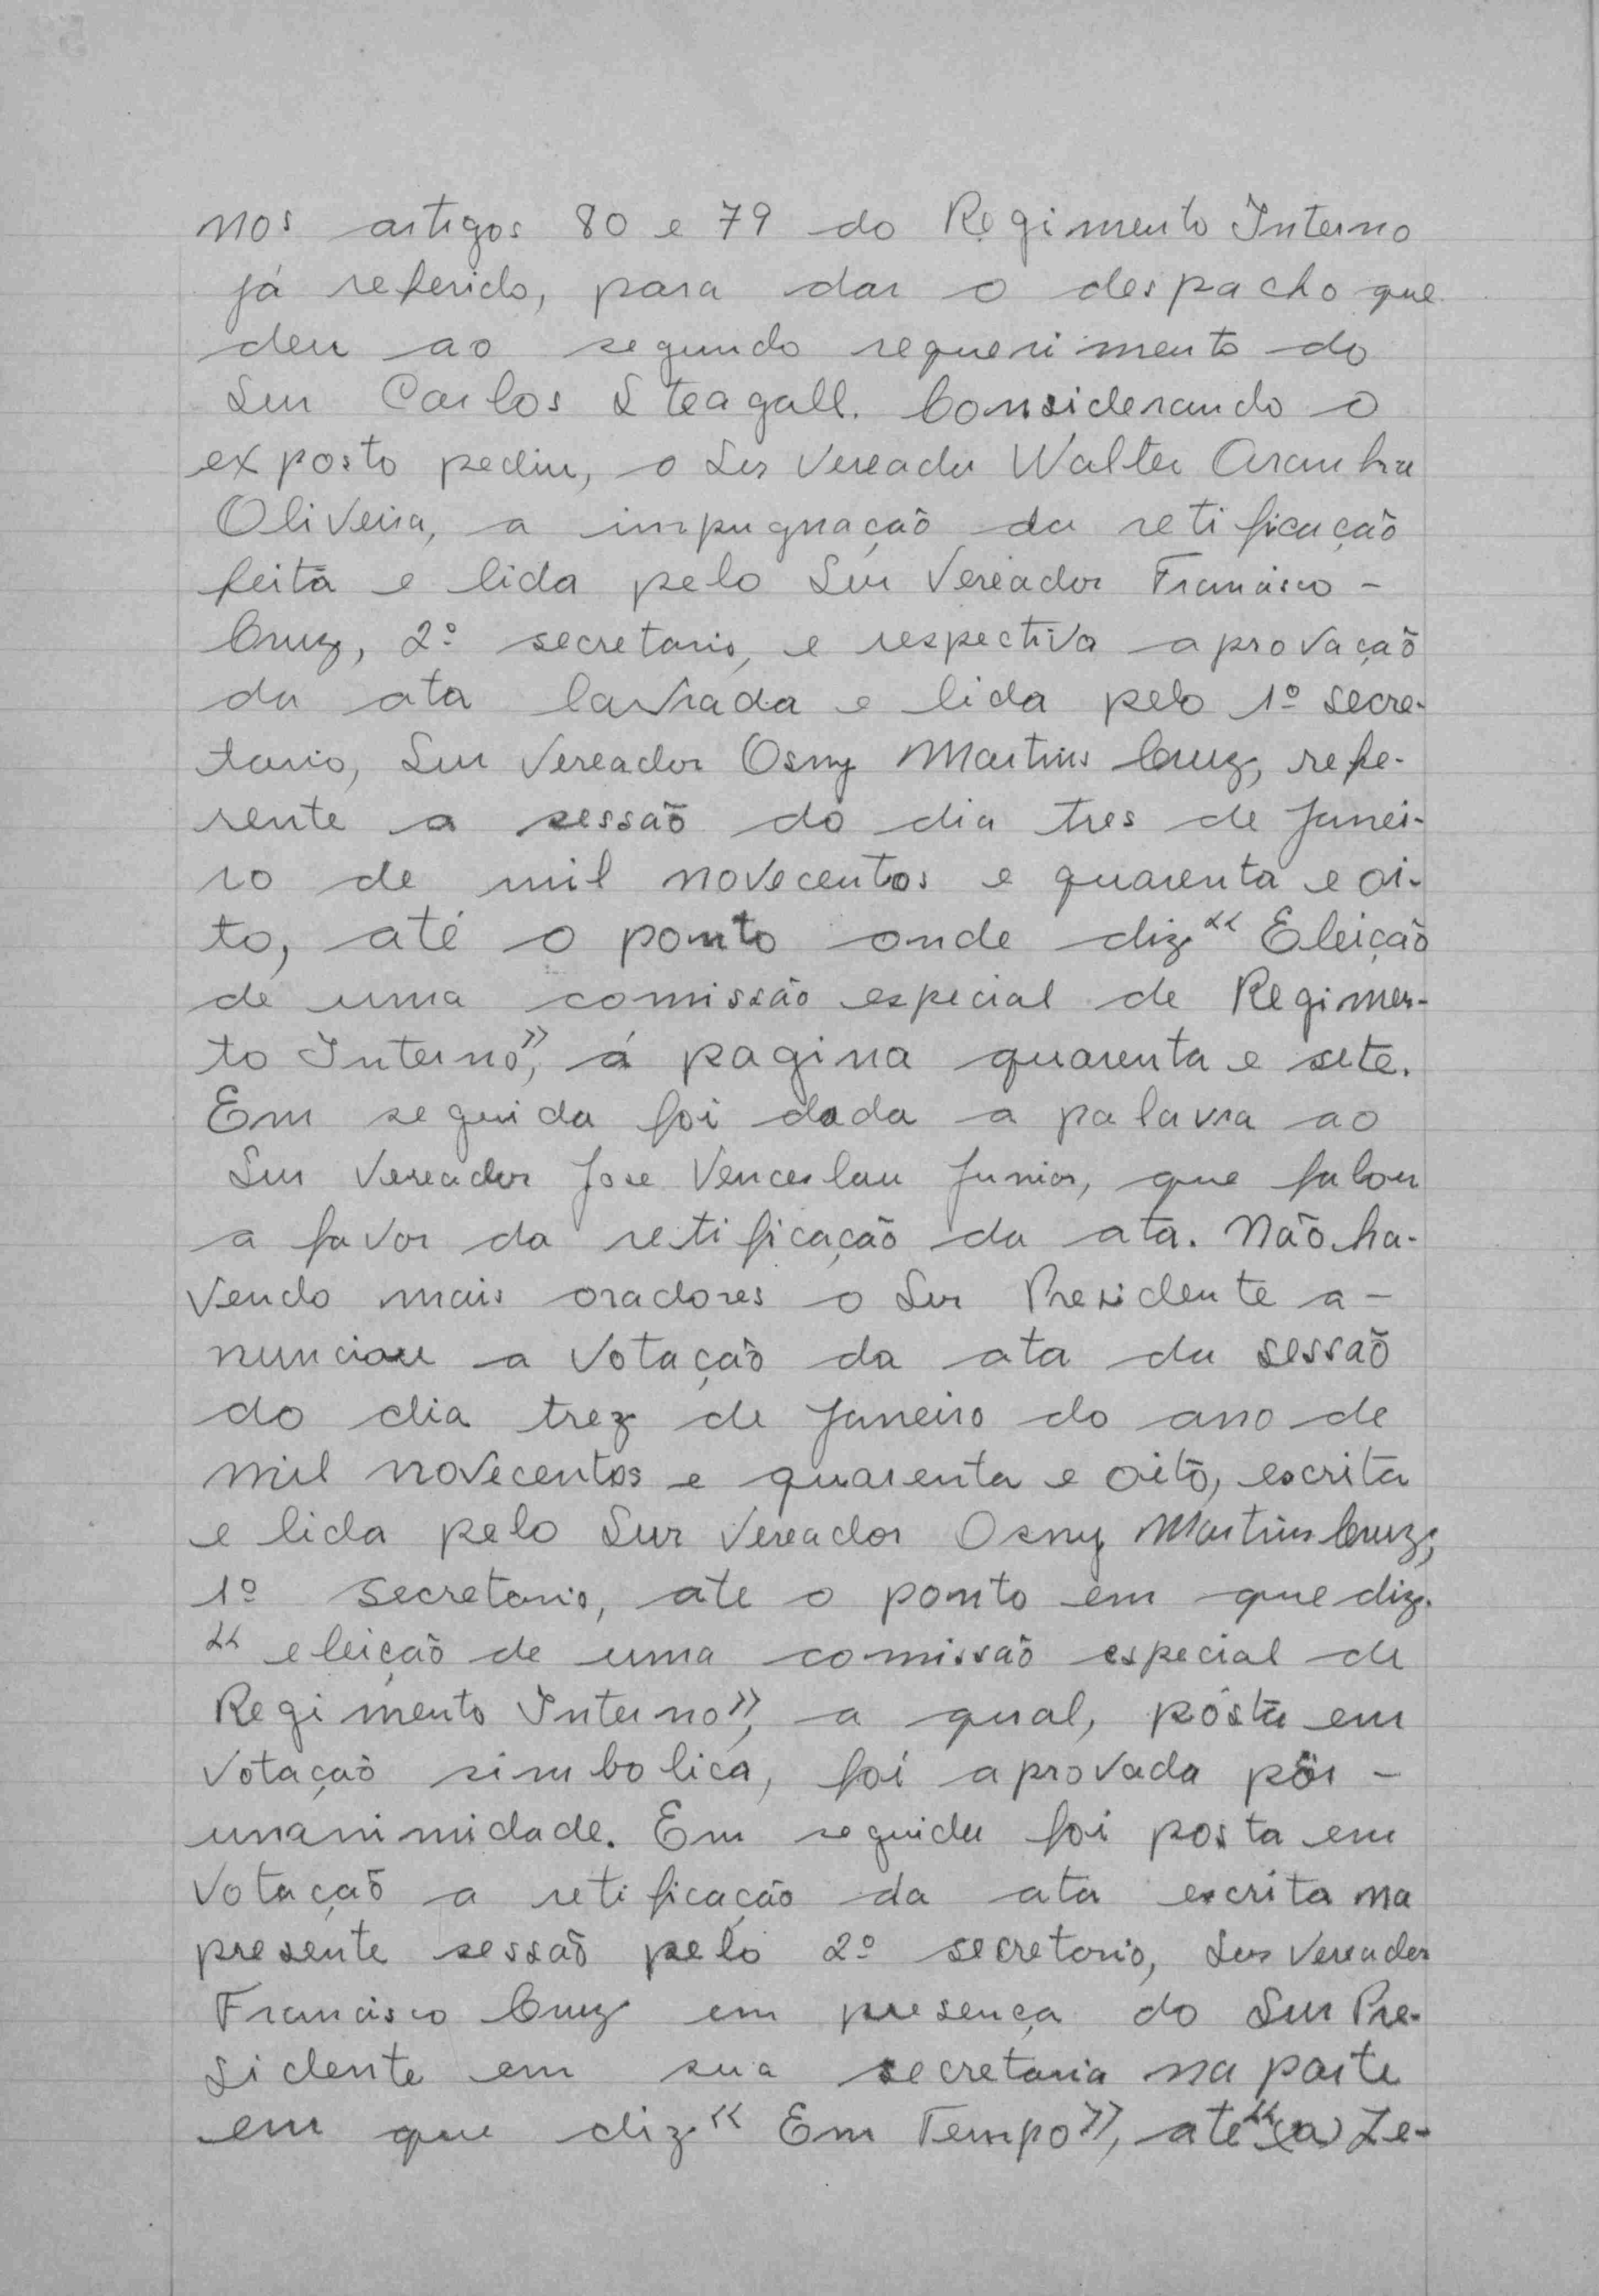 nos artigos 80 e 79 do Regimento Interno
já referido, para dar o despacho que
deu ao segundo requerimento do
Snr Carlos Steagall. Considerando o
exposto pediu, o Snr Vereador Walter Aranha
Oliveira, a impugnação da retificação
feita e lida pelo Snr Vereador Francisco -
Cruz, 2º secretario, e respectiva aprovação
da ata lavrada e lida pelo 1º secre-
tario, Snr Vereador Osny Martins Cruz, refe-
rente a sessão do dia tres de Janei-
ro de mil novecentos e quarenta e oi-
to, até o ponto onde diz "Eleição
de uma comissão especial de Regimen-
to Interno", á pagina quarenta e sete.
Em seguida foi dada a palavra ao
Snr Vereador Jose Venceslau Junior, que falou
a favor da retificação da ata. Não ha-
vendo mais oradores o Snr Presidente a-
nunciou a votação da ata da sessão
do dia trez de Janeiro do ano de
mil novecentos e quarenta e oito, escrita
e lida pelo Snr Vereador Osny Martins Cruz,
1º secretario, ate o ponto em que diz.
"eleição de uma comissão especial de
Regimento Interno", a qual, pósta em
votação simbolica, foi aprovada pôr -
unanimidade. Em seguida foi posta em
votação a retificação da ata escrita na
presente sessão pelo 2º secretario, Snr Vereador
Francisco Cruz em presença do Snr Pre-
sidente em sua secretaria na parte
em que diz "Em Tempo", até "(a) Ze-